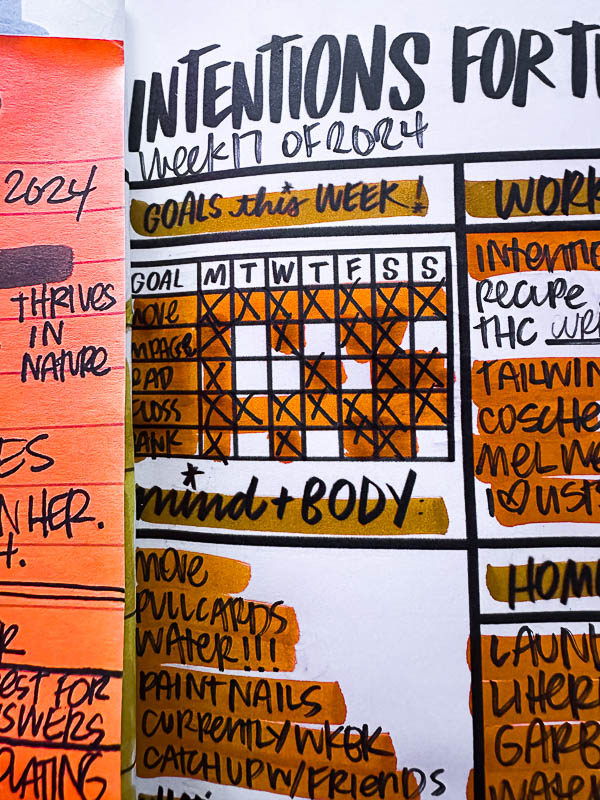 2024
THRIVES
IN
NATURE
N HER.
EST FOR
SWERS
INTENTIONS FOR
WEEK 17 OF 2024
GOALS this WEEK!
GOAL M T W T F S S
MOVE X X X X X X X
X X X X
X X X X
LOSS X X X X X X X
ANK X X X X
mind + BODY
MOVE
PULL CARDS
WATER!!!
PAINT NAILS
CURRENTLY WEEK
CATCH UP W/ FRIENDS
WORK
INTENTIO
RECIPE
THC WR
TAILWIN
COSCHE
MEL WE
I ♡ US
HOM
LAUN
LIHER
GARB
WATER